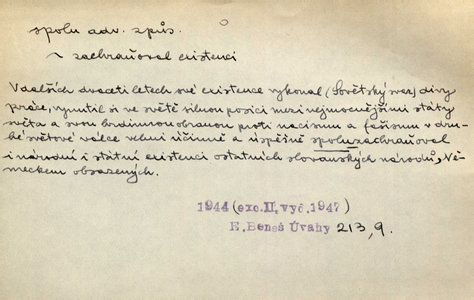 spolu adv. způs.
~ zachraňoval existenci
V dalších dvaceti letech své existence vykonal (Sovětský svaz) divy
práce, vynutil si ve světě silnou posici mezi nejmocnějšími státy
světa a svou hrdinnou obranou proti nacismu a fašismu v dru-
hé světové válce velmi účinně a úspěšně spoluzachraňoval
i národní i státní existenci ostatních slovanských národů, Ně-
meckem obsazených.
1944 (exc.II.vyč.1947)
E. Beneš Úvahy 213,9.